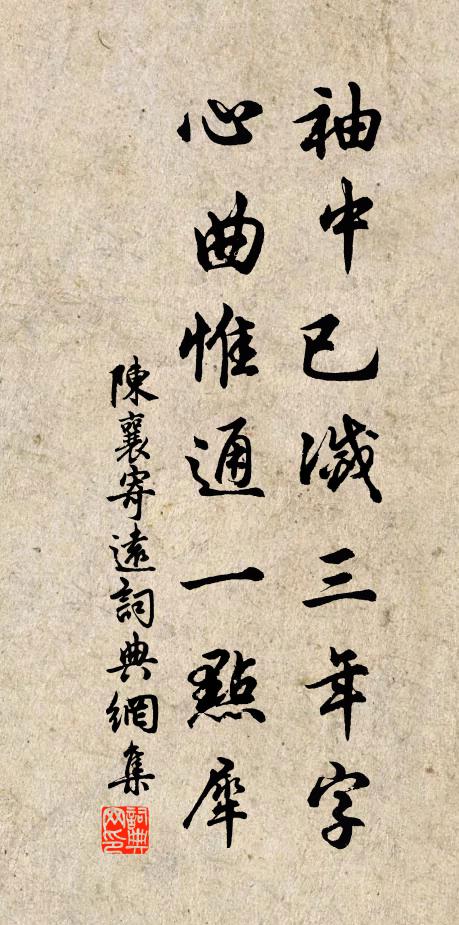 袖中已滅三年字
心曲惟通一點犀
陳襄寄遠詞典網集
詞典网印